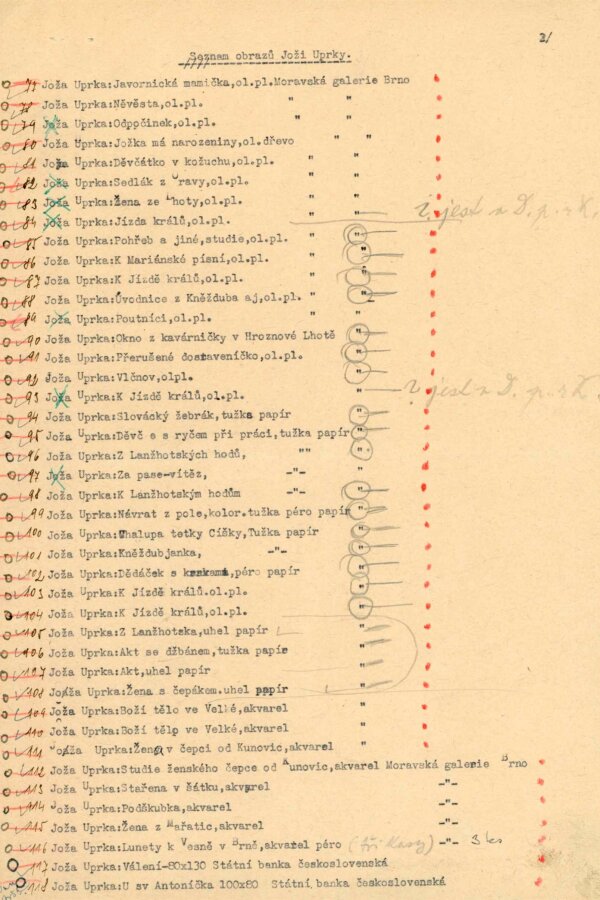 2/
Seznam obrazů Joži Uprky.
77 Joža Uprka:Javornická mamička,ol.pl.Moravská galerie Brno
78 Joža Uprka:Něvěsta,ol.pl. " "
79 Joža Uprka:Odpočinek,ol.pl. " "
80 Joža Uprka:Jožka má narozeniny,ol.dřevo " "
81 Joža Uprka:Děvčátko v kožuchu,ol.pl. " "
82 Joža Uprka:Sedlák z Vravy,ol.pl. " "
83 Joža Uprka:Žena ze Lhoty,ol.pl. " "
84 Joža Uprka:Jízda králů,ol.pl. " " jest v D. p.
85 Joža Uprka:Pohřeb a jiné,studie,ol.pl. " "
86 Joža Uprka:K Mariánské písní,ol.pl. " "
87 Joža Uprka:K Jízdě králů,ol.pl. " "
88 Joža Uprka:Úvodnice z Kněžduba aj,ol.pl. " "
89 Joža Uprka:Poutníci,ol.pl. " "
90 Joža Uprka:Okno z kavárničky v Hroznové Lhotě "
91 Joža Uprka:Přerušené dostaveníčko,ol.pl. "
92 Joža Uprka:Vlčnov,olpl. "
93 Joža Uprka:K Jízdě králů,ol.pl. " jest v D. p.
94 Joža Uprka:Slovácký žebrák,tužka papír "
95 Joža Uprka:Děvč e s ryčem při práci,tužka papír "
96 Joža Uprka:Z Lanžhotských hodů, "" "
97 Joža Uprka:Za pase-vítěz, -"- "
98 Joža Uprka:K Lanžhotským hodům -"- "
99 Joža Uprka:Návrat z pole,kolor.tužka péro papír "
100 Joža Uprka:Chalupa tetky Číšky,Tužka papír "
101 Joža Uprka:Kněždubjanka, -"- "
102 Joža Uprka:Dědáček s ,péro papír "
103 Joža Uprka:K Jízdě králů.ol.pl. "
104 Joža Uprka:K Jízdě králů,ol.pl. "
105 Joža Uprka:Z Lanžhotska,uhel papír "
106 Joža Uprka:Akt se džbánem,tužka papír "
107 Joža Uprka:Akt,uhel papír "
108 Joža Uprka:Žena s čepákem.uhel papír "
109 Joža Uprka:Boží tělo ve Velké,akvarel "
110 Joža Uprka:Boží tělo ve Velké,akvarel "
111 Joža Uprka:Žena v čepci od Kunovic,akvarel "
112 Joža Uprka:Studie ženského čepce od Kunovic,akvarel Moravská galerie Brno
113 Joža Uprka:Stařena v šátku,akvarel -"-
114 Joža Uprka:Poděkubka,akvarel -"-
115 Joža Uprka:Žena z Mařatic,akvarel -"-
116 Joža Uprka:Lunety k Vesně v Brně,akvarel péro (tři kusy) -"- 3 ks
117 Joža Uprka:Válení-80x130 Státní banka československá
118 Joža Uprka:U sv Antoníčka 100x80 Státní banka československá